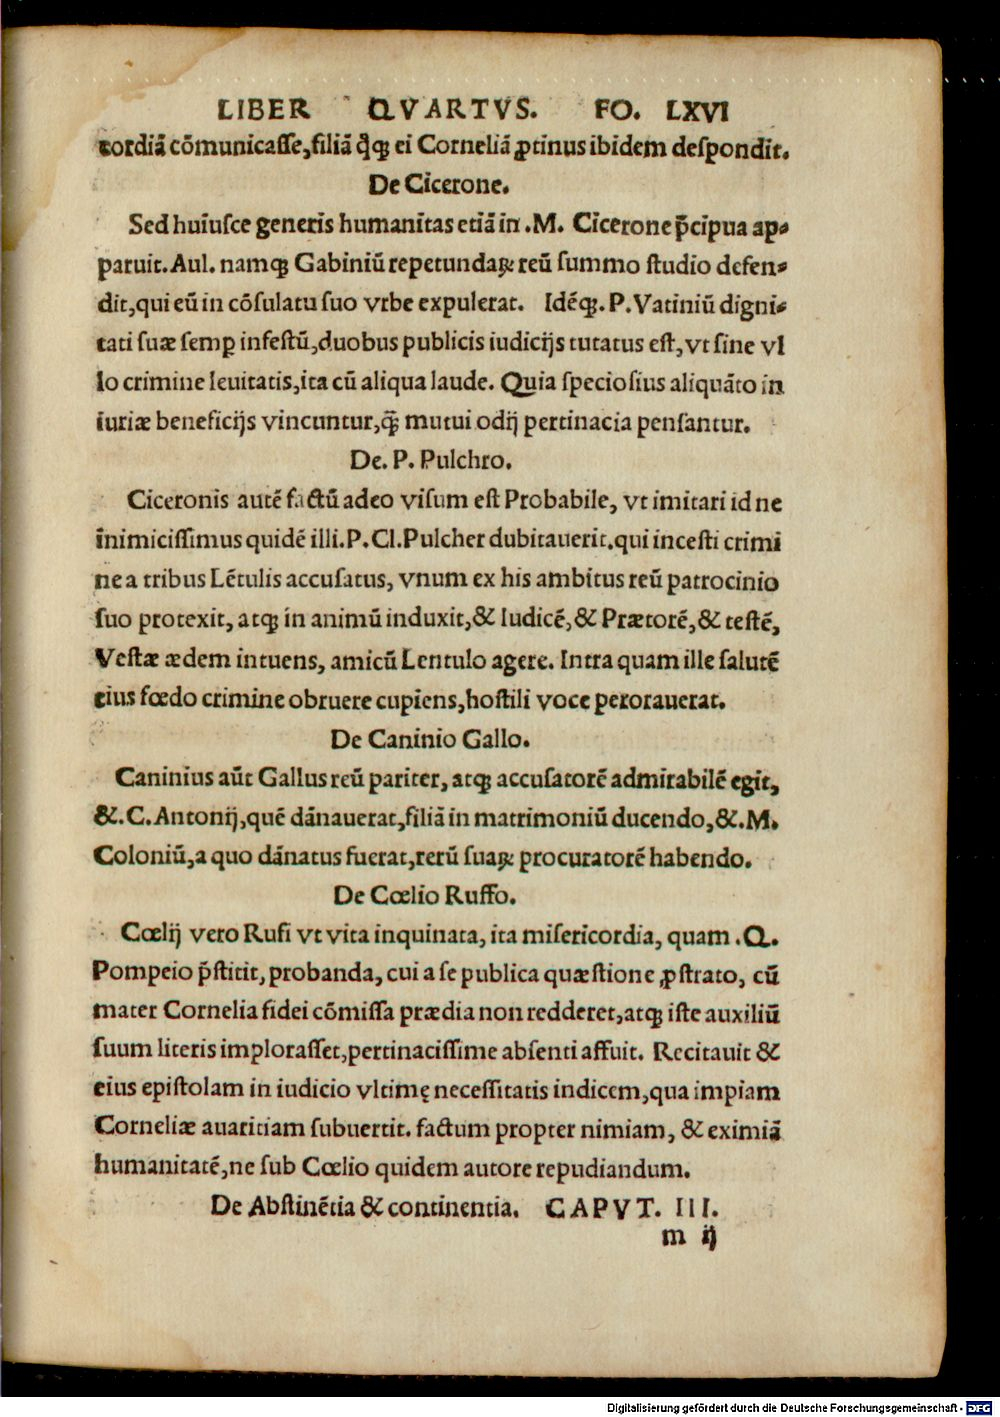 LIBER QVARTVS. FO. LXVI
cordiā cōmunicaſſe,filiā q̄q; ei Corneliā ꝓtinus ibidem deſpondit.
De Cicerone.
Sed huiuſce generis humanitas etiā in .M. Cicerone p̄cipua ap-
paruit. Aul. namq; Gabiniū repetundaꝝ reū ſummo ſtudio defen-
dit,qui eū in cōſulatu ſuo vrbe expulerat. Idēq;. P. Vatiniū digni-
tati ſuæ ſemꝑ infeſtū,duobus publicis iudicijs tutatus eſt,vt ſine vl
lo crimine leuitatis,ita cū aliqua laude. Quia ſpecioſius aliquāto in
iuriæ beneficijs vincuntur,q̄ mutui odij pertinacia penſantur.
De. P. Pulchro.
Ciceronis autē factū adeo viſum eſt Probabile, vt imitari id ne
inimiciſſimus quidē illi.P.Cl.Pulcher dubitauerit.qui inceſti crimi
ne a tribus Lētulis accuſatus, vnum ex his ambitus reū patrocinio
ſuo protexit, atq; in animū induxit,& Iudicē,& Prætorē,& teſtē,
Veſtæ ædem intuens, amicū Lentulo agere. Intra quam ille ſalutē
eius fœdo crimine obruere cupiens,hoſtili voce perorauerat.
De Caninio Gallo.
Caninius aūt Gallus reū pariter, atq; accuſatorē admirabilē egit,
&.C. Antonij,quē dānauerat,filiā in matrimoniū ducendo,&.M.
Coloniū,a quo dānatus fuerat,rerū ſuaꝝ procuratorē habendo.
De Cœlio Ruffo.
Cœlij vero Rufi vt vita inquinata, ita miſericordia, quam .Q.
Pompeio p̄ſtitit, probanda, cui a ſe publica quæſtione ꝓſtrato, cū
mater Cornelia fidei cōmiſſa prædia non redderet,atq; iſte auxiliū
ſuum literis imploraſſet,pertinaciſſime abſenti affuit. Recitauit &
eius epiſtolam in iudicio vltimę neceſſitatis indicem,qua impiam
Corneliæ auaritiam ſubuertit. factum propter nimiam, & eximiā
humanitatē,ne ſub Cœlio quidem autore repudiandum.
De Abſtinētia & continentia. CAPVT. III.
m ij
Digitalisierung gefördert durch die Deutsche Forschungsgemeinschaft - DFG